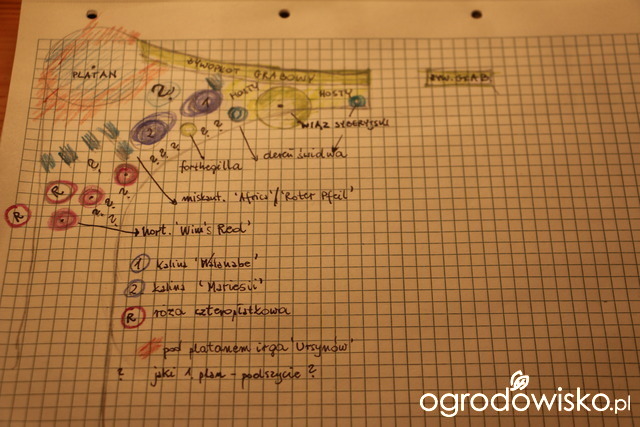 PLATAN
ŻYWOPŁOT GRABOWY
ŻYW. GRAB
HOSTY
HOSTY
?
1
2
WIĄZ SYBERYJSKI
? ?
? ? ?
forthegilla
dereń świdwa
?
?
R
miskant. 'Africi'/'Roter Pfeil'
R
? ?
hort. 'Wim's Red'
1 kalina 'Watanabe'
2 kalina 'Mariesii'
R róża czteropłatkowa
pod platanem irga 'Ursynów'
? jaki 1. plan - podszycie ?
ogrodowisko.pl